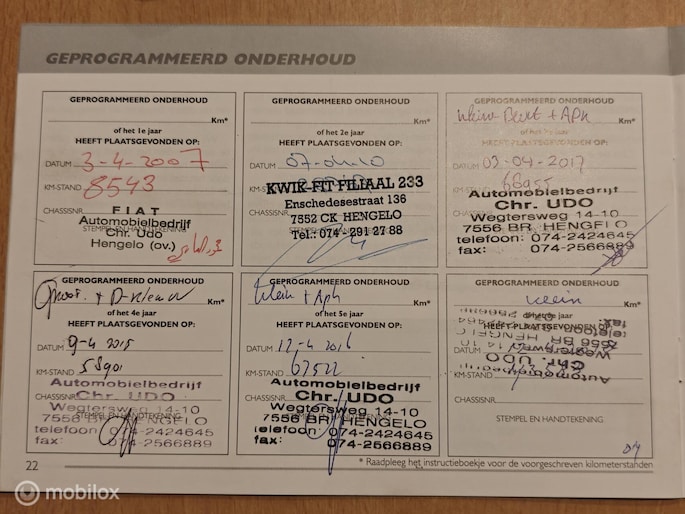 GEPROGRAMMEERD ONDERHOUD
GEPROGRAMMEERD ONDERHOUD
Km*
of het 1e jaar
HEEFT PLAATSGEVONDEN OP:
DATUM 3-4-2007
KM-STAND 8543
CHASSISNR.
FIAT
Automobielbedrijf
STEMPEL EN HANDTEKENING
Chr. Udo
Hengelo (ov.)
GEPROGRAMMEERD ONDERHOUD
Km*
of het 2e jaar
HEEFT PLAATSGEVONDEN OP:
DATUM 07-04-10
KM-STAND
KWIK-FIT FILIAAL 233
Enschedesestraat 136
CHASSISNR.
7552 CK HENGELO
Tel.: 074 - 291 27 88
GEPROGRAMMEERD ONDERHOUD
Klein Beurt + APK
Km*
HEEFT PLAATSGEVONDEN OP:
DATUM 03-04-2017
KM-STAND 66955
Automobielbedrijf
CHASSISNR.
Chr. UDO
Wegtersweg 14-10
7556 BR HENGELO
telefoon: 074-2424645
fax: 074-2566889
GEPROGRAMMEERD ONDERHOUD
Groot +
Km*
of het 4e jaar
HEEFT PLAATSGEVONDEN OP:
DATUM 9-4 2015
KM-STAND 58901
Automobielbedrijf
Chr. UDO
Wegtersweg 14-10
7556 BR HENGELO
telefoon: 074-2424645
fax: 074-2566889
GEPROGRAMMEERD ONDERHOUD
Klein + APK
Km*
of het 5e jaar
HEEFT PLAATSGEVONDEN OP:
DATUM 12-4 2016
KM-STAND 67522
Automobielbedrijf
Chr. UDO
Wegtersweg 14-10
7556 BR HENGELO
telefoon: 074-2424645
fax: 074-2566889
GEPROGRAMMEERD ONDERHOUD
klein
Km*
jaar
HEEFT PLAATSGEVONDEN OP:
DATUM
KM-STAND
Chr. UDO
CHASSISNR.
STEMPEL EN HANDTEKENING
22
* Raadpleeg het instructieboekje voor de voorgeschreven kilometerstanden
mobilox